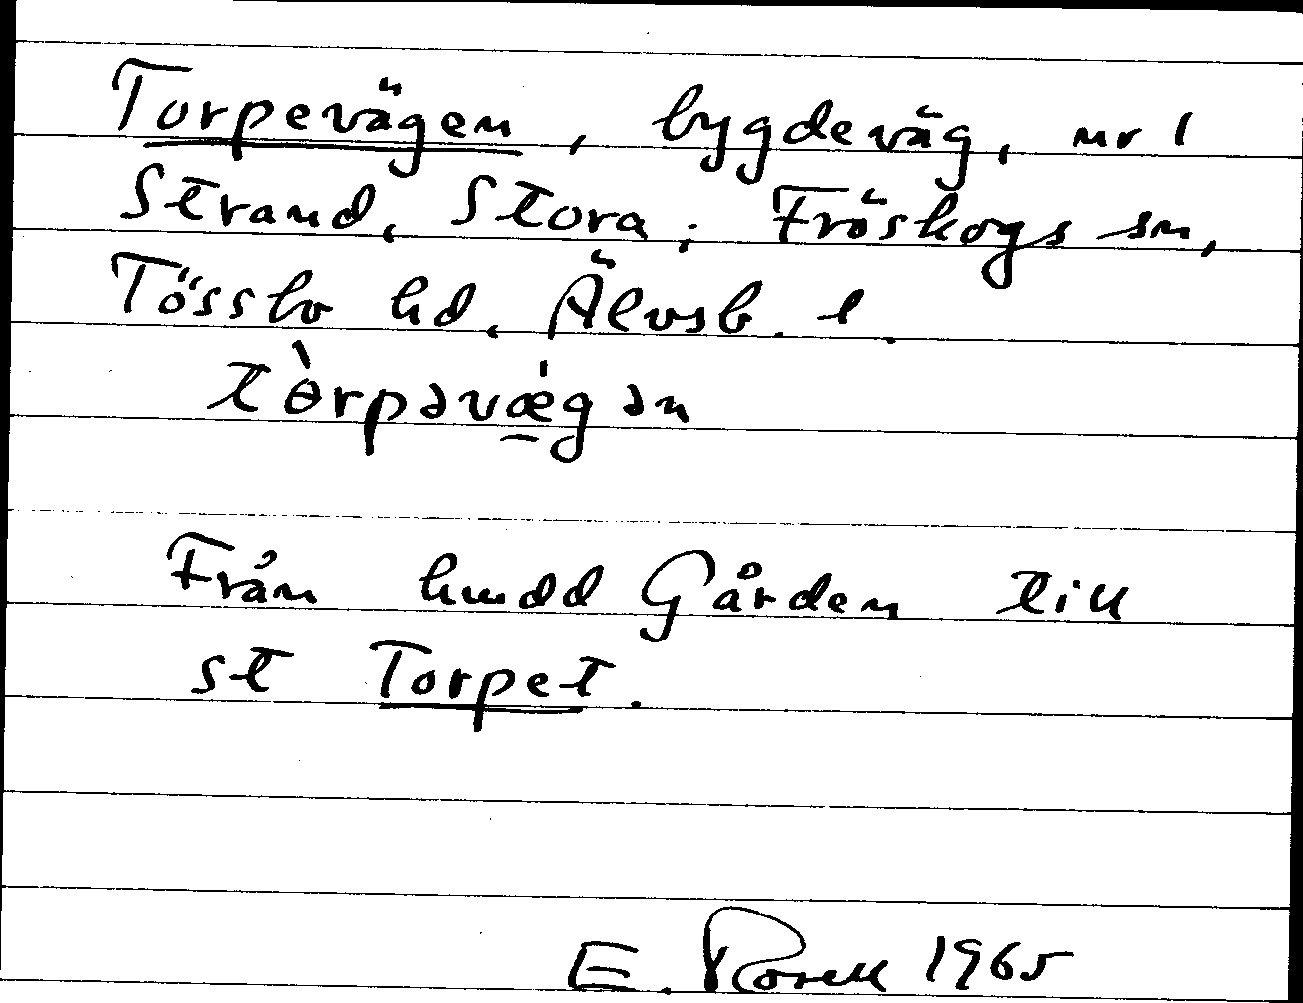 Torpevägen, bygdeväg, nr 1
Strand, Stora; Fröskogs sn,
Tössbo hd, Älvsb. l.
tɵ̀rpəvǽ̱gən
Från hmdd Gården till
st Torpet.
E. Rosell 1965